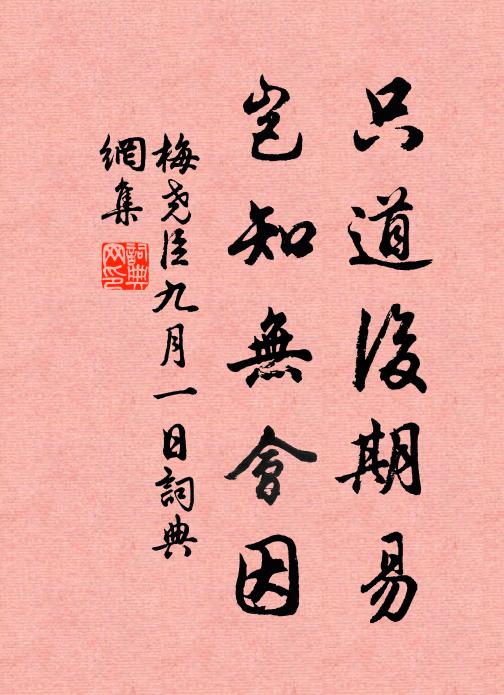 只道後期易
豈知無會因
梅尧臣九月一日詞典
網集
詞典
网印